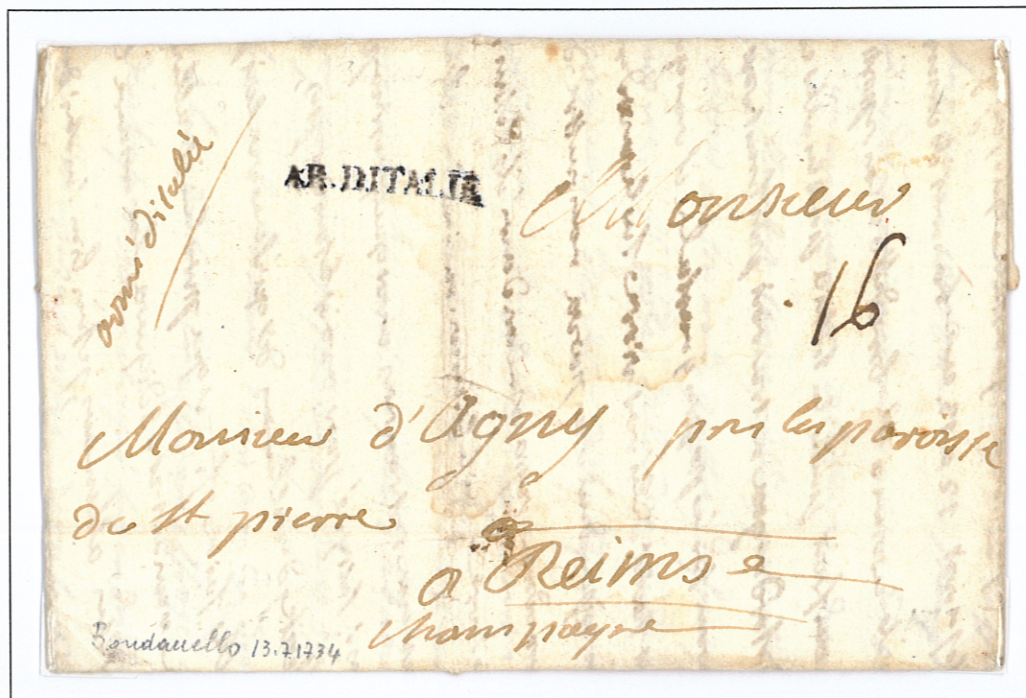 armé ditalie
AR.DITALIE
Monsieur
16
Monsieur d'Agny pres la paroisse
de St pierre
a Reims
champagne
Bondanello 13.7.1734